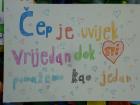 Čep je uvijek
vrijedan dok svi
pomažemo kao jedan